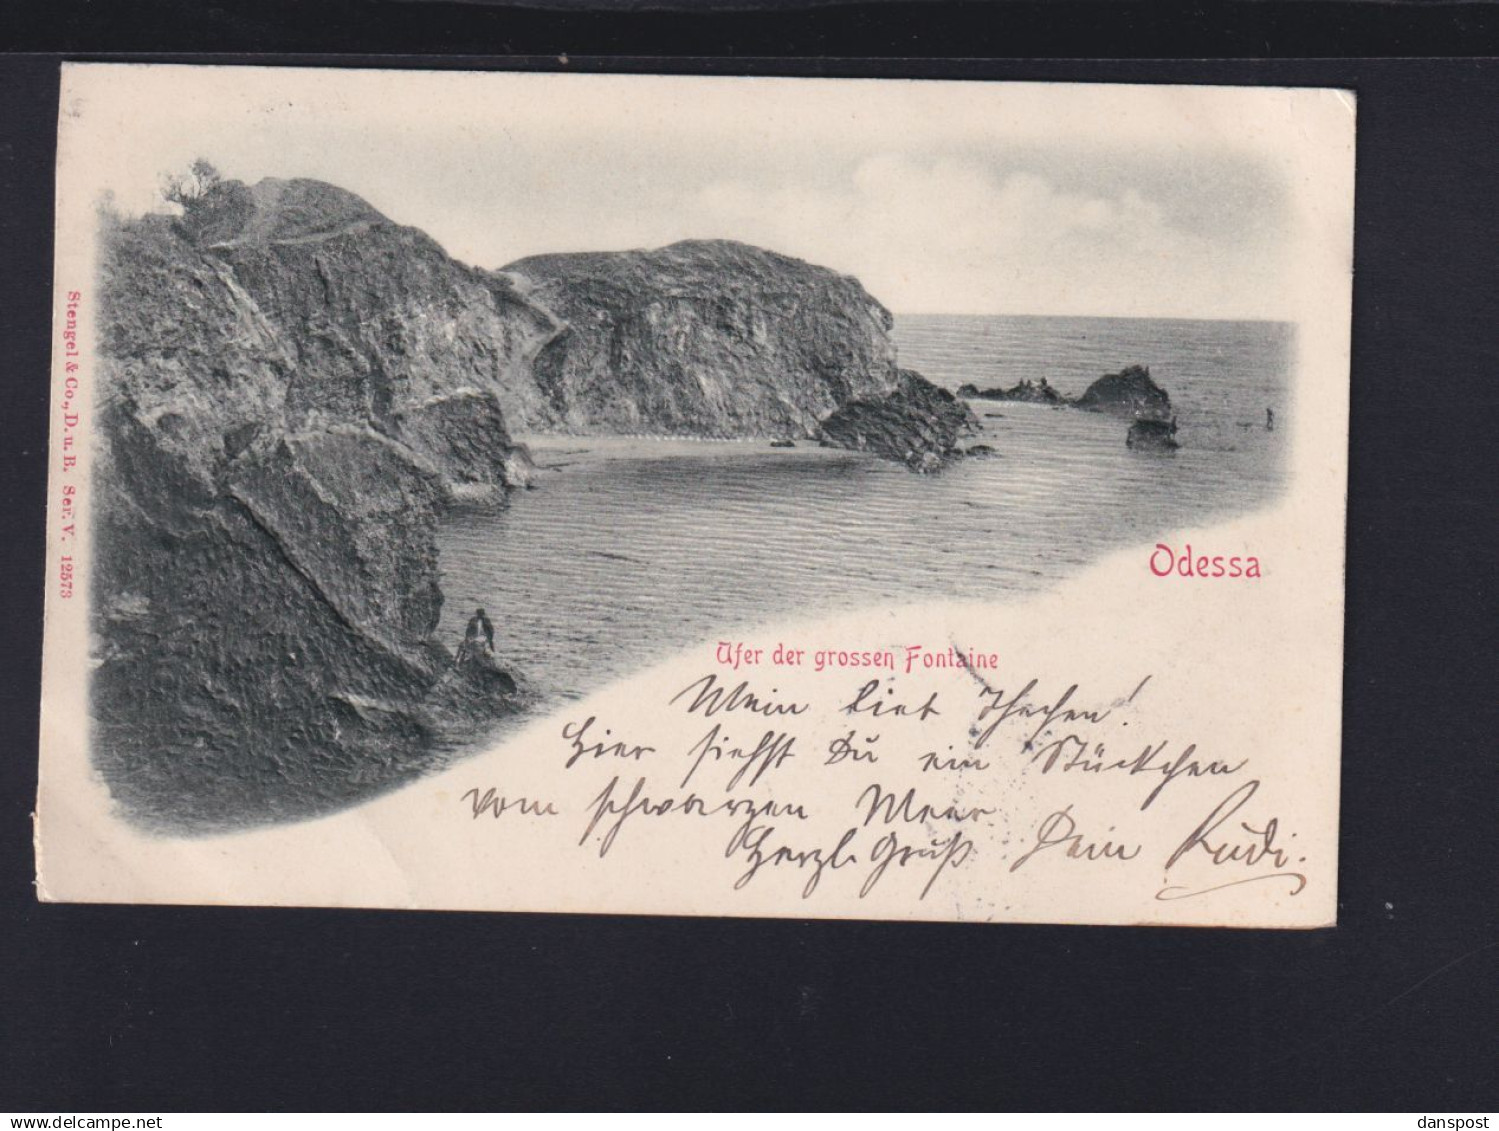 Stengel & Co., D. u. B. Ser. V. 12573
Odessa
Ufer der grossen Fontaine
Mein lieb
Hier siehst Du ein Stückchen
vom schwarzen Meer
Herzl. Gruß Dein Rudi.
delcampe.net
danspost